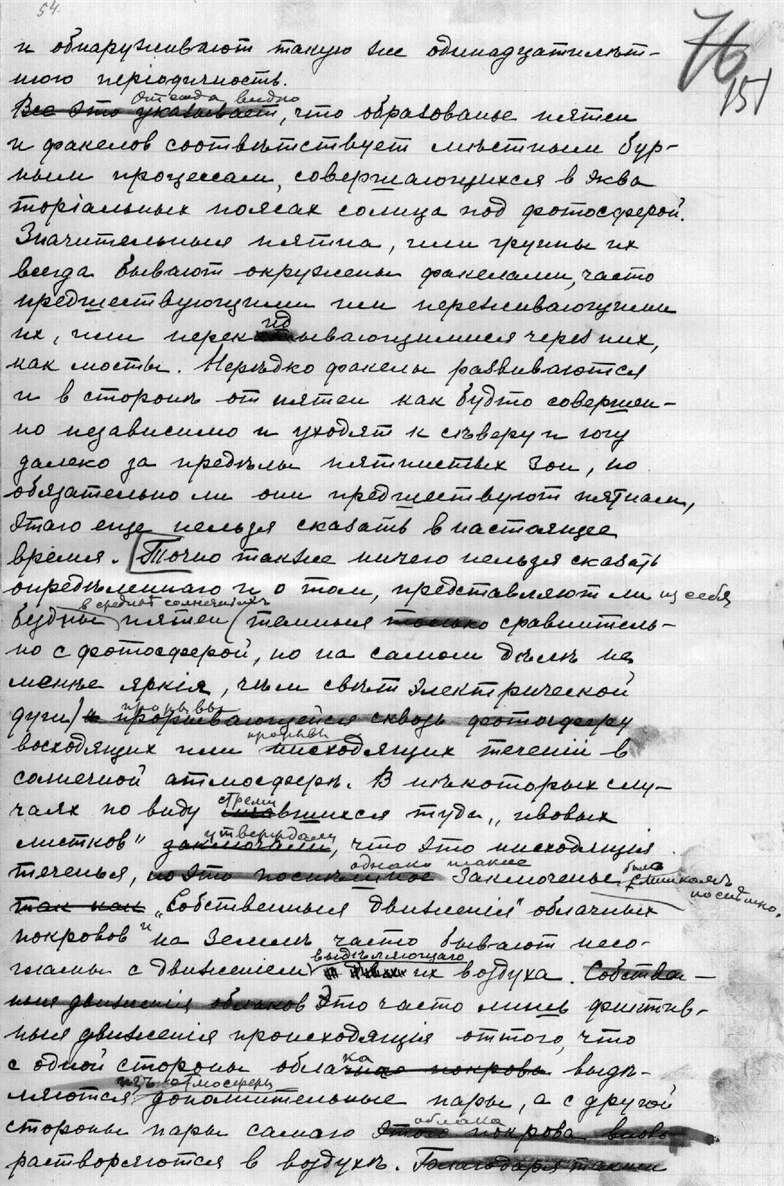 54.
76
151
и обнаруживают такую же одинадцатилѣт-
нюю періодичность.
Отсюда видно
Все это указывает, что образованье пятен
и факелов соотвѣтствует мѣстным бур-
ным процессам, совершающихся в эква
торіальных поясах солнца под фотосферой.
Значительныя пятна, или группы их
всегда бывают окружены факелами, часто
предшествующими или переживающими
их, или перекидывающимися через них,
как мосты. Нерѣдко факелы развиваются
и в сторонѣ от пятен как будто совершен-
но независимо и уходят к сѣверу и югу
далеко за предѣлы пятнистых зон, но
обязательно ли они предшествуют пятнам,
этаго еще нельзя сказать в настоящее
время. Точно также ничего нельзя сказать
опредѣленнаго и о том, представляют ли из себя
в средней солнечных
пятен (темныя только сравнитель-
но с фотосферой, но на самом дѣлѣ не
менѣе яркія, чѣм свѣт электрической
прорывы
дуги) и прорывающейся сквозь фотосферу
прорывы
восходящих или нисходящих теченій в
солнечной атмосферѣ. В нѣкоторых слу-
чаях по виду стремившихся туда „ивовых
утверждали
листков" заключали, что это нисходящія
однако такое было слишком
теченья, но это поспѣшное заключенье поспѣшно.
так как „Собственныя движенія" облачных
покровов и на Землѣ часто бывают несо-
выдѣляющаго
гласны с движеніем их воздуха. Собствен-
ныя движенія облаков Это часто лишь фиктив-
ныя движенія происходящія оттого, что
с одной стороны облачнаго покрова ка выдѣ-
из атмосферы
ляются дополнительные пары, а с другой
облака
стороны пары самаго этого покрова вновь
растворяются в воздухѣ. Благодаря таким